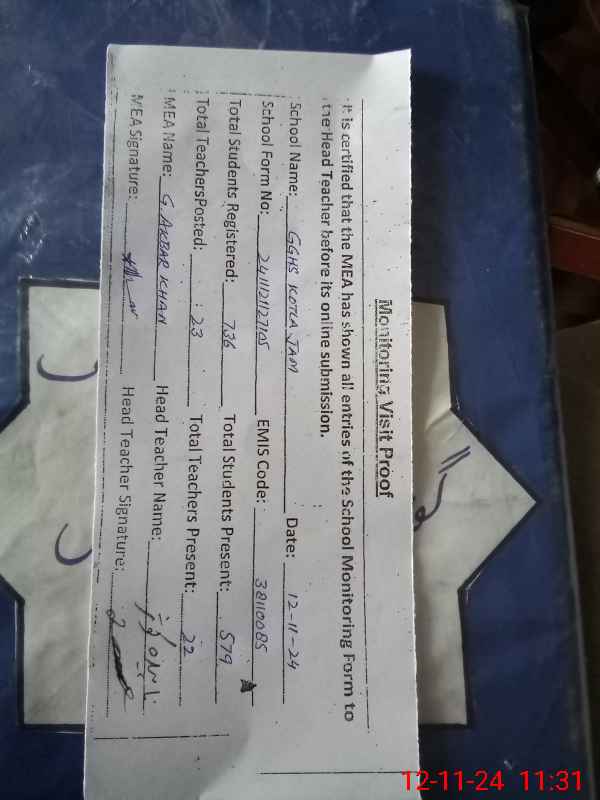 Monitoring Visit Proof
It is certified that the MEA has shown all entries of the School Monitoring Form to
the Head Teacher before its online submission.
School Name: GGHS KOTLA JAM Date: 12-11-24
School Form No: EMIS Code: 38110085
Total Students Registered: 736 Total Students Present: 579
Total TeachersPosted: 23 Total Teachers Present: 22
MEA Name: G. AKBAR KHAN Head Teacher Name:
MEA Signature: Head Teacher Signature:
12-11-24 11:31